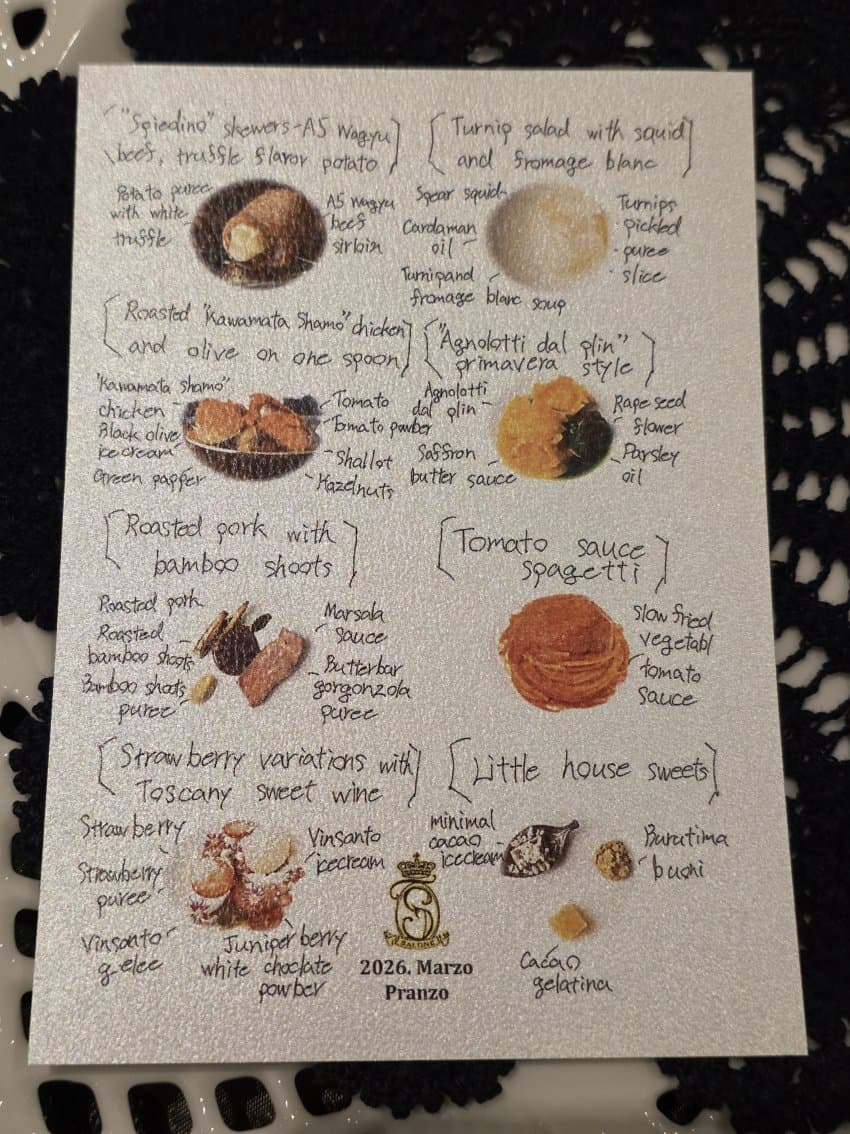 "Spiedino" skewers-A5 Wagyu
beef, truffle flavor potato
Potato puree
with white
truffle
A5 wagyu
beef
sirloin
Turnip salad with squid
and fromage blanc
Spear squid
Cardaman
oil
Turnipand
fromage blanc soup
Turnips
・pickled
・puree
・slice
Roasted "Kawamata Shamo" chicken
and olive on one spoon
"Kawamata Shamo"
chicken
Black olive
icecream
Green papper
Tomato
Tomato powber
Shallot
Hazelnuts
"Agnolotti dal plin"
primavera style
Agnolotti
dal plin
Saffron
butter sauce
Rape seed
flower
Parsley
oil
Roasted pork with
bamboo shoots
Roasted pork
Roasted
bamboo shoots
Bamboo shoots
puree
Marsala
sauce
Butterbar
gorgonzola
puree
Tomato sauce
spagetti
Slow fried
vegetabl
tomato
sauce
Strawberry variations with
Toscany sweet wine
Strawberry
Strawberry
puree
Vinsanto
gelee
Vinsanto
icecream
Juniper berry
white choclate
powber
Little house sweets
minimal
cacao
icecream
Burutima
buoni
Cacao
gelatina
SALONE
2026. Marzo
Pranzo